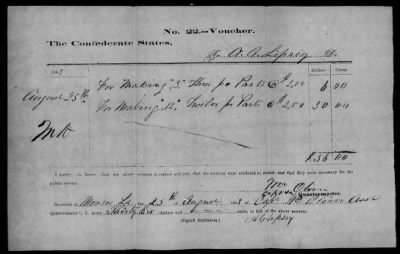 No. 22.—Voucher.
The Confederate States,
To A. A. Lipsey Dr.
Dollars. Cents.
August 25th For Making "2" Three pr Pants @ $2,00 6 00
For Making "12" Twelve pr Pants @ $2,50 30 00
$36 00
I certify, on honor, that the above account is correct and just; that the services were rendered as stated, and that they were necessary for the
public service.
Wm Oliver
Quartermaster.
Received at Monroe La 25th August of Capt Wm Oliver
Quartermaster C. S. Army Thirty Six dollars and cents, in full of the above account.
(Signed Duplicates.)
A A Lipsey